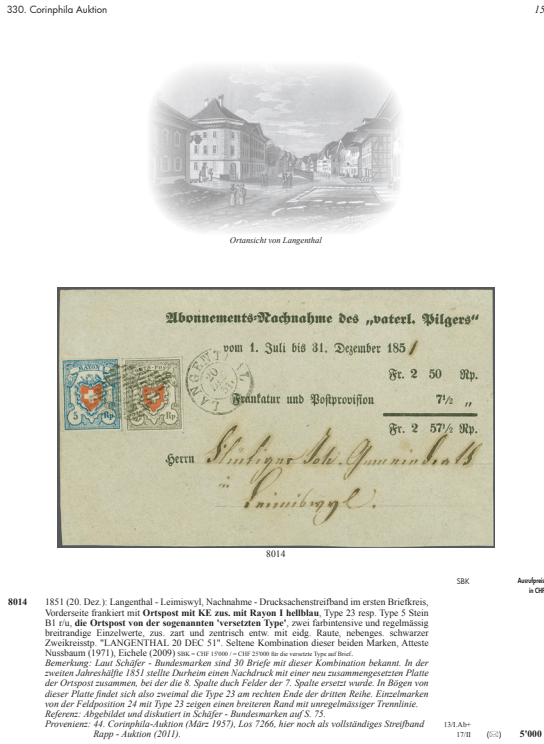 330. Corinphila Auktion
15
Ortansicht von Langenthal
Abonnements-Nachnahme des „vaterl. Pilgers“
vom 1. Juli bis 31. Dezember 1851
Fr. 2 50 Rp.
Frankatur und Postprovision 7½ „
Fr. 2 57½ Rp.
RAYON I
5 Rp
LANGENTHAL
Herrn
in
Leimiswyl.
8014
SBK
Ausrufpreis
in CHF
8014 1851 (20. Dez.): Langenthal - Leimiswyl, Nachnahme - Drucksachenstreifband im ersten Briefkreis,
Vorderseite frankiert mit Ortspost mit KE zus. mit Rayon I hellblau, Type 23 resp. Type 5 Stein
B1 r/u, die Ortspost von der sogenannten 'versetzten Type', zwei farbintensive und regelmässig
breitrandige Einzelwerte, zus. zart und zentrisch entw. mit eidg. Raute, nebenges. schwarzer
Zweikreisstp. "LANGENTHAL 20 DEC 51". Seltene Kombination dieser beiden Marken, Atteste
Nussbaum (1971), Eichele (2009) SBK = CHF 15'000 / = CHF 25'000 für die versetzte Type auf Brief.
Bemerkung: Laut Schäfer - Bundesmarken sind 30 Briefe mit dieser Kombination bekannt. In der
zweiten Jahreshälfte 1851 stellte Durheim einen Nachdruck mit einer neu zusammengesetzten Platte
der Ortspost zusammen, bei der die 8. Spalte duch Felder der 7. Spalte ersetzt wurde. In Bögen von
dieser Platte findet sich also zweimal die Type 23 am rechten Ende der dritten Reihe. Einzelmarken
von der Feldposition 24 mit Type 23 zeigen einen breiteren Rand mit unregelmässiger Trennlinie.
Referenz: Abgebildet und diskutiert in Schäfer - Bundesmarken auf S. 75.
Provenienz: 44. Corinphila-Auktion (März 1957), Los 7266, hier noch als vollständiges Streifband
Rapp - Auktion (2011).
13/I.Ab+
17/II (✉) 5'000